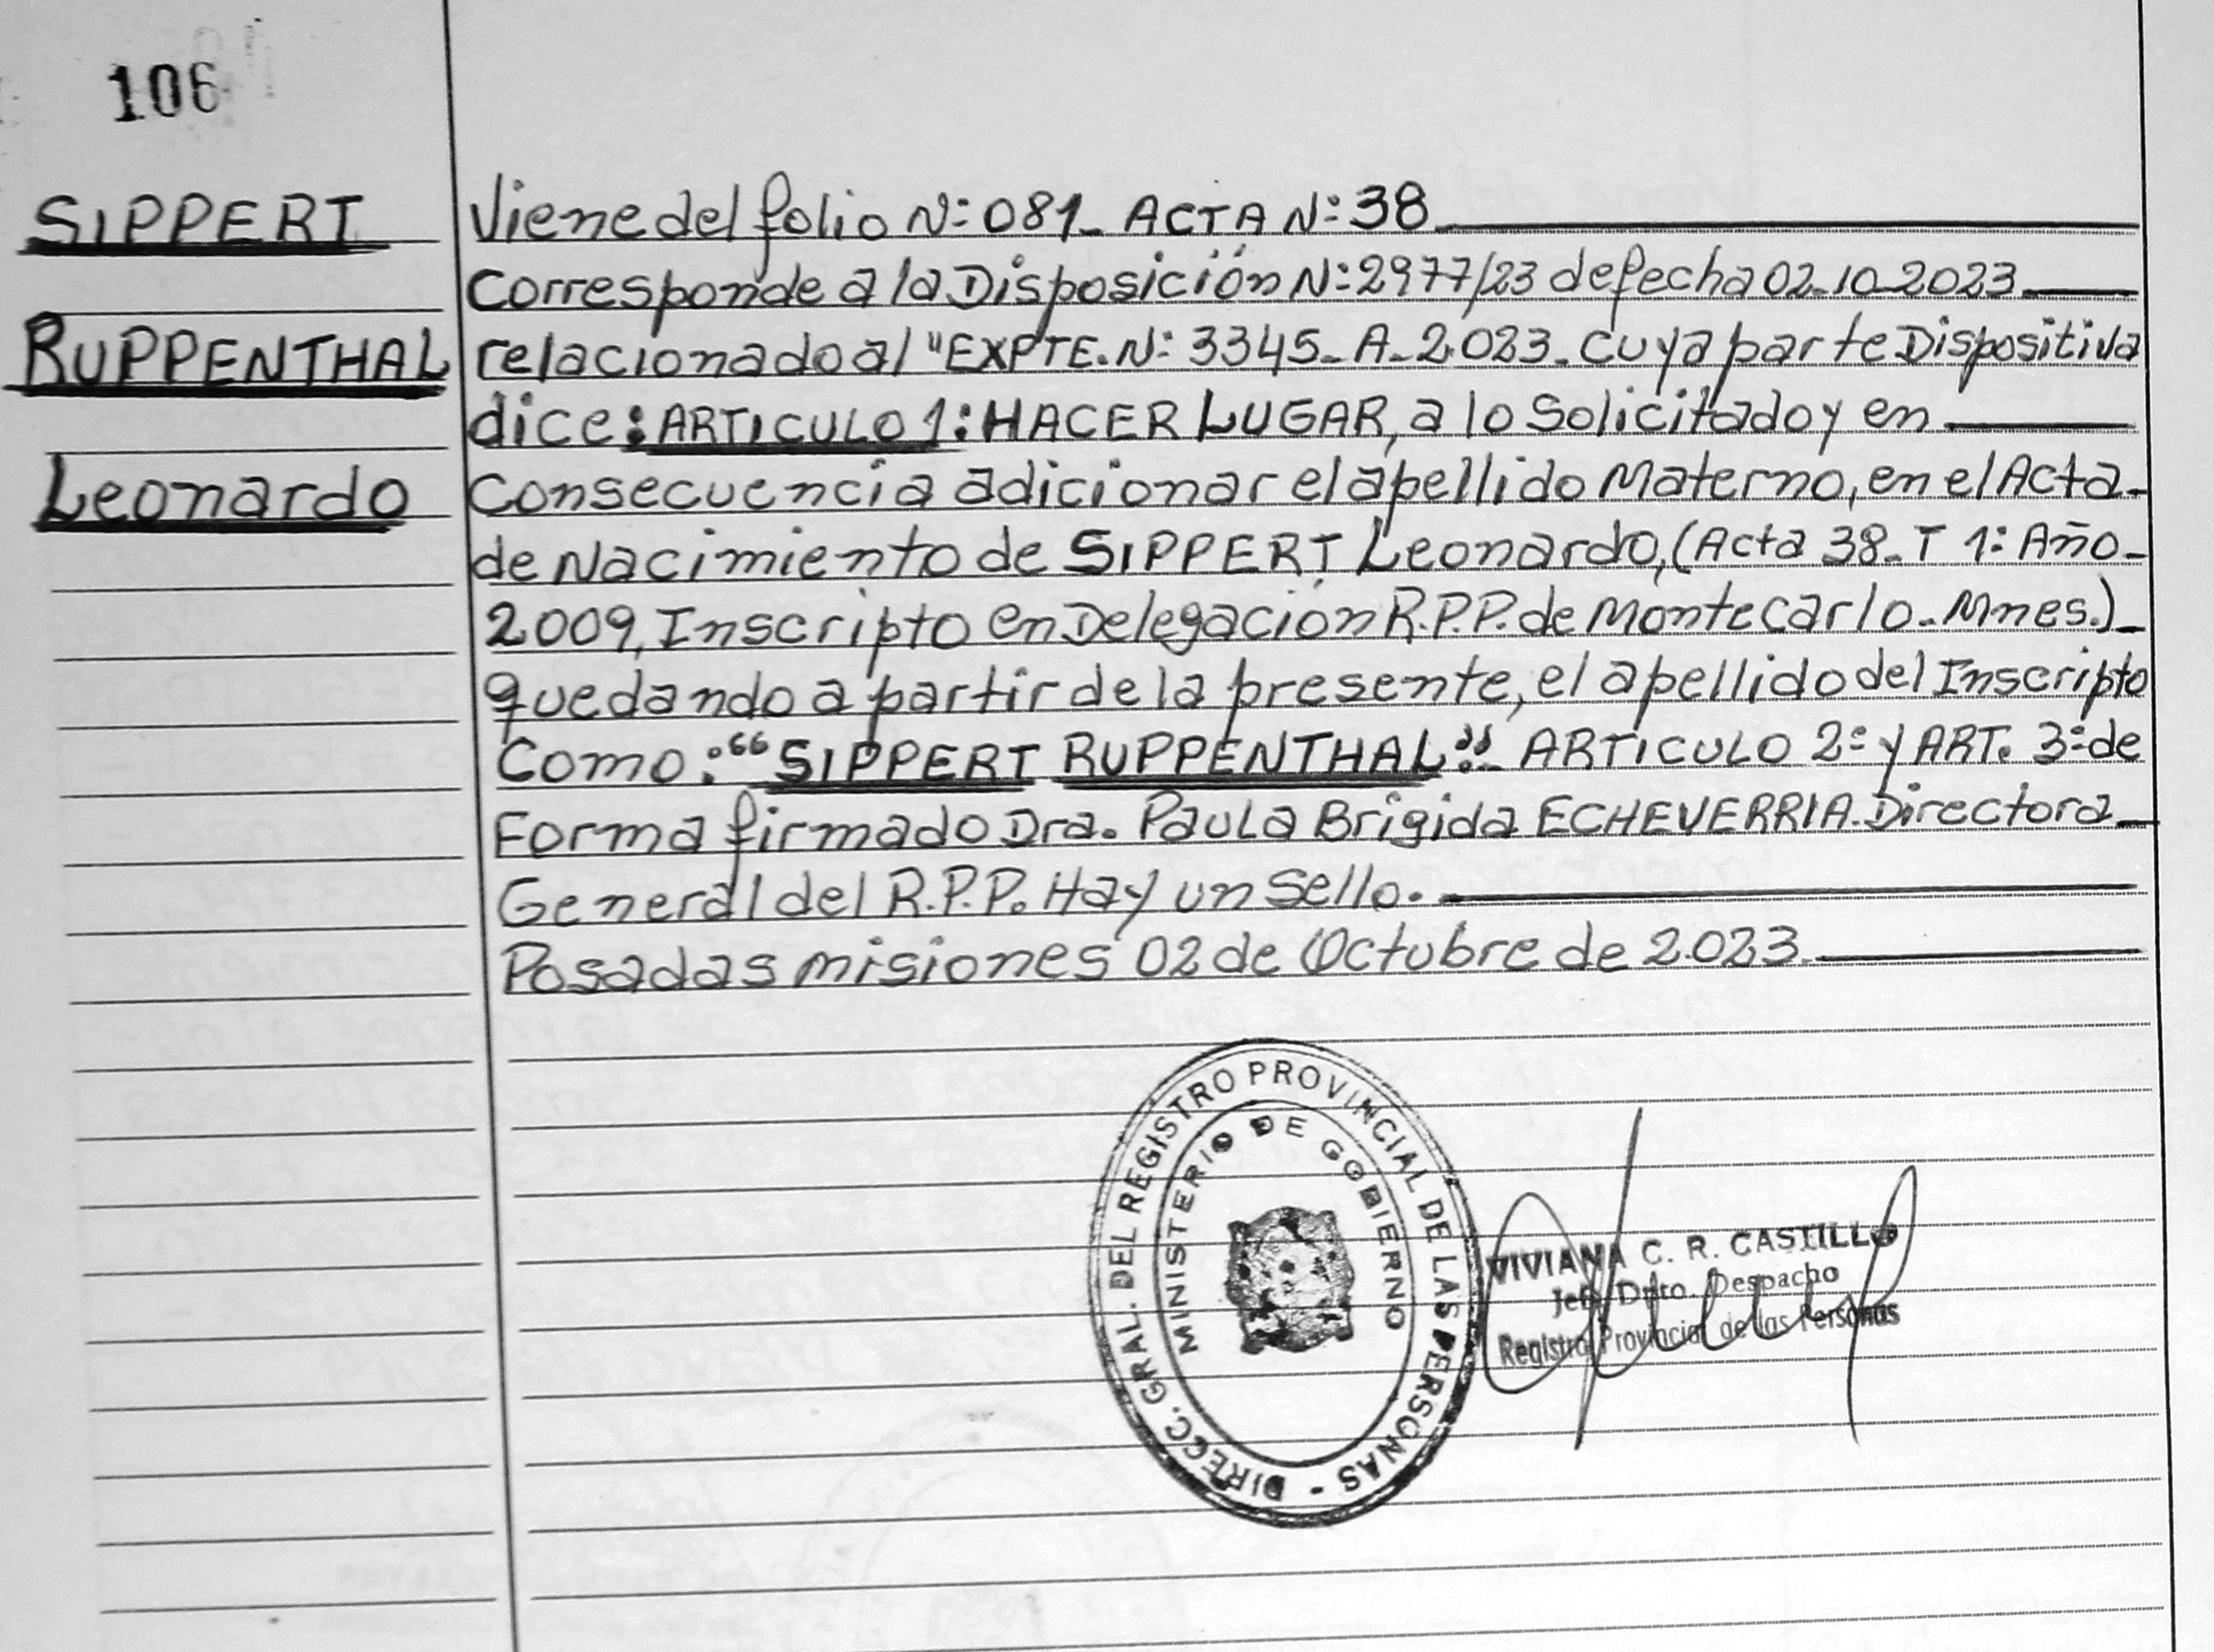 106
SIPPERT
RUPPENTHAL
Leonardo
Viene del folio N: 081_ ACTA N: 38
Corresponde a la Disposición N: 2977/23 de fecha 02_10_2023
relacionado al "EXPTE. N: 3345_A_2.023_ cuya parte Dispositiva
dice: ARTICULO 1: HACER LUGAR, a lo Solicitado y en
Consecuencia adicionar el apellido Materno, en el Acta_
de Nacimiento de SIPPERT Leonardo, (Acta 38_ T 1: Año_
2.009, Inscripto en Delegación R.P.P. de Montecarlo_Mnes.)_
quedando a partir de la presente, el apellido del Inscripto
Como: "SIPPERT RUPPENTHAL" ARTICULO 2º y ART. 3º de
Forma firmado Dra. Paula Brigida ECHEVERRIA. Directora_
General del R.P.P. Hay un Sello.
Posadas misiones 02 de Octubre de 2.023
DIRECC. GRAL. DEL REGISTRO PROVINCIAL DE LAS PERSONAS -
MINISTERIO DE GOBIERNO
VIVIANA C. R. CASTILLO
Jefe Dpto. Despacho
Registro Provincial de las Personas